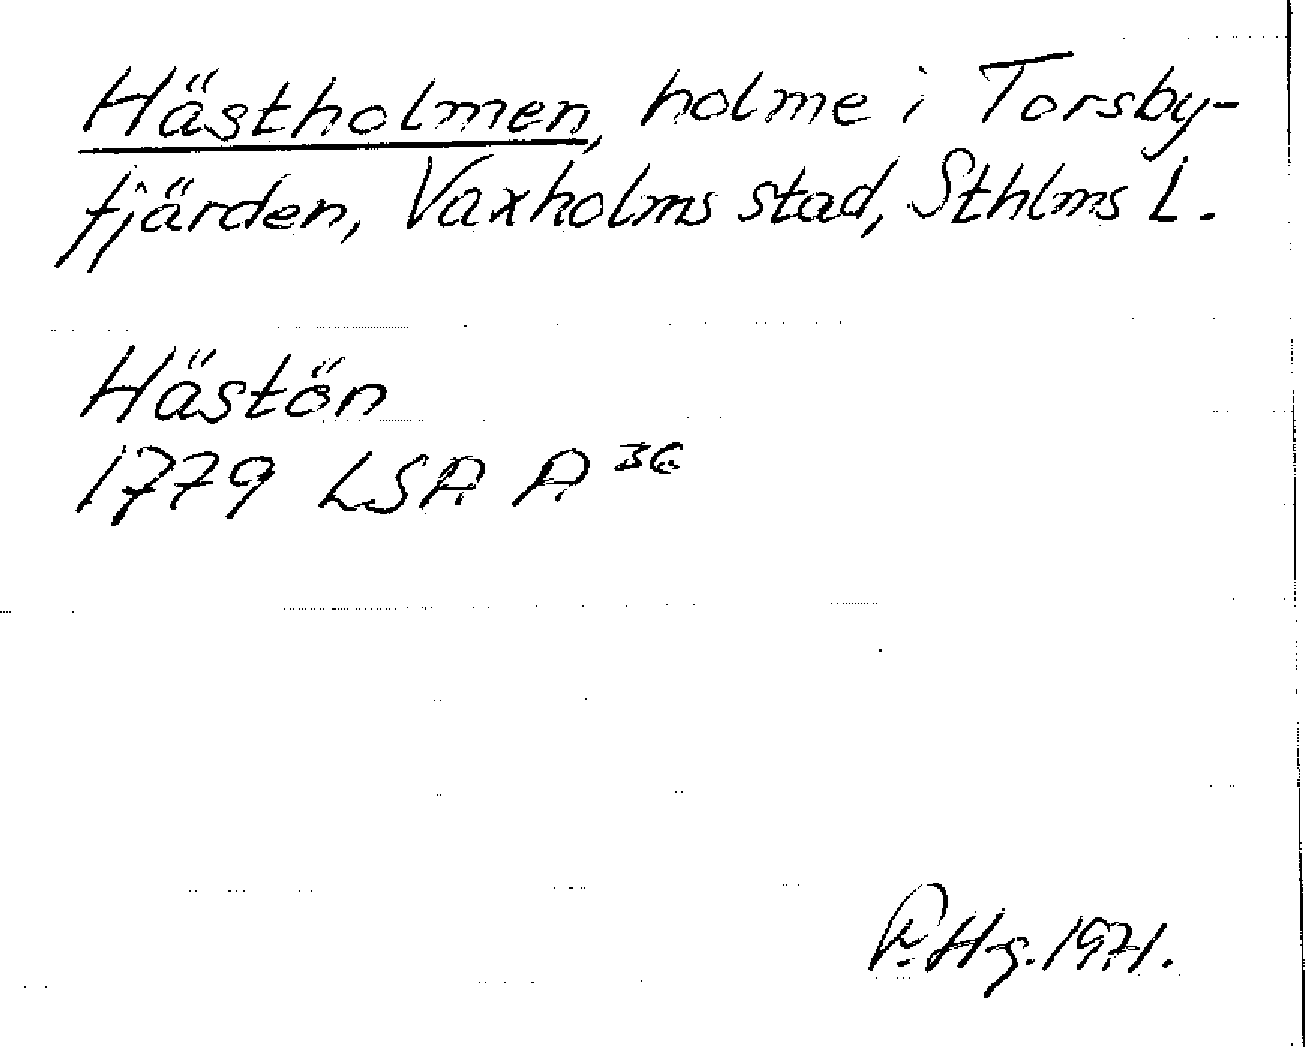 Hästholmen, holme i Torsby-
fjärden, Vaxholms stad, Sthlms L.
Hästön
1779 LSA A 36
R. Hg. 1971.